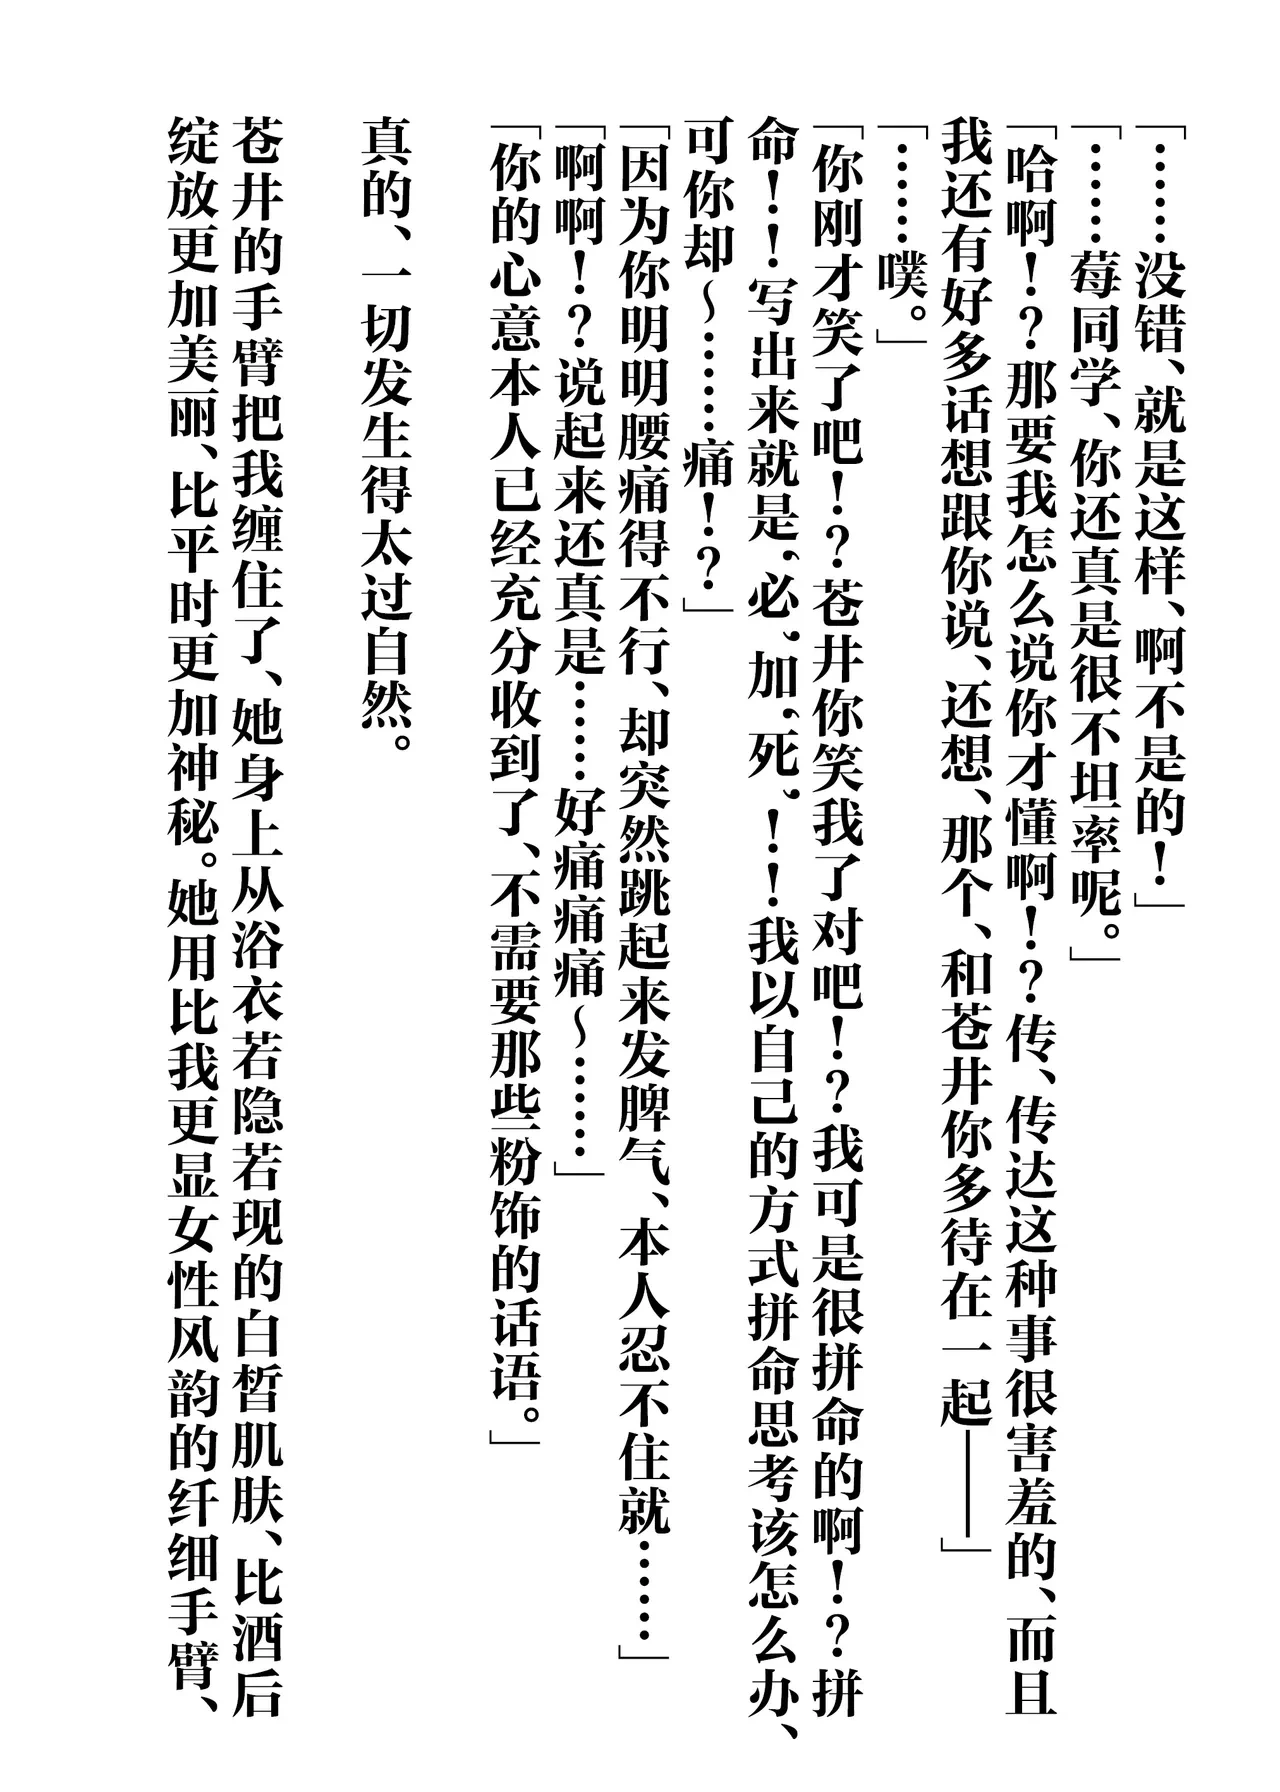 「……没错、就是这样、啊不是的！」
「……莓同学、你还真是很不坦率呢。」
「哈啊！？那要我怎么说你才懂啊！？传、传达这种事很害羞的、而且
我还有好多话想跟你说、还想、那个、和苍井你多待在一起——」
「……噗。」
「你刚才笑了吧！？苍井你笑我了对吧！？我可是很拼命的啊！？拼
命！！写出来就是‘必’加‘死’！！我以自己的方式拼命思考该怎么办、
可你却～………痛！？」
「因为你明明腰痛得不行、却突然跳起来发脾气、本人忍不住就………」
「啊啊！？说起来还真是……好痛痛痛～………」
「你的心意本人已经充分收到了、不需要那些粉饰的话语。」
真的、一切发生得太过自然。
苍井的手臂把我缠住了、她身上从浴衣若隐若现的白皙肌肤、比酒后
绽放更加美丽、比平时更加神秘。她用比我更显女性风韵的纤细手臂、